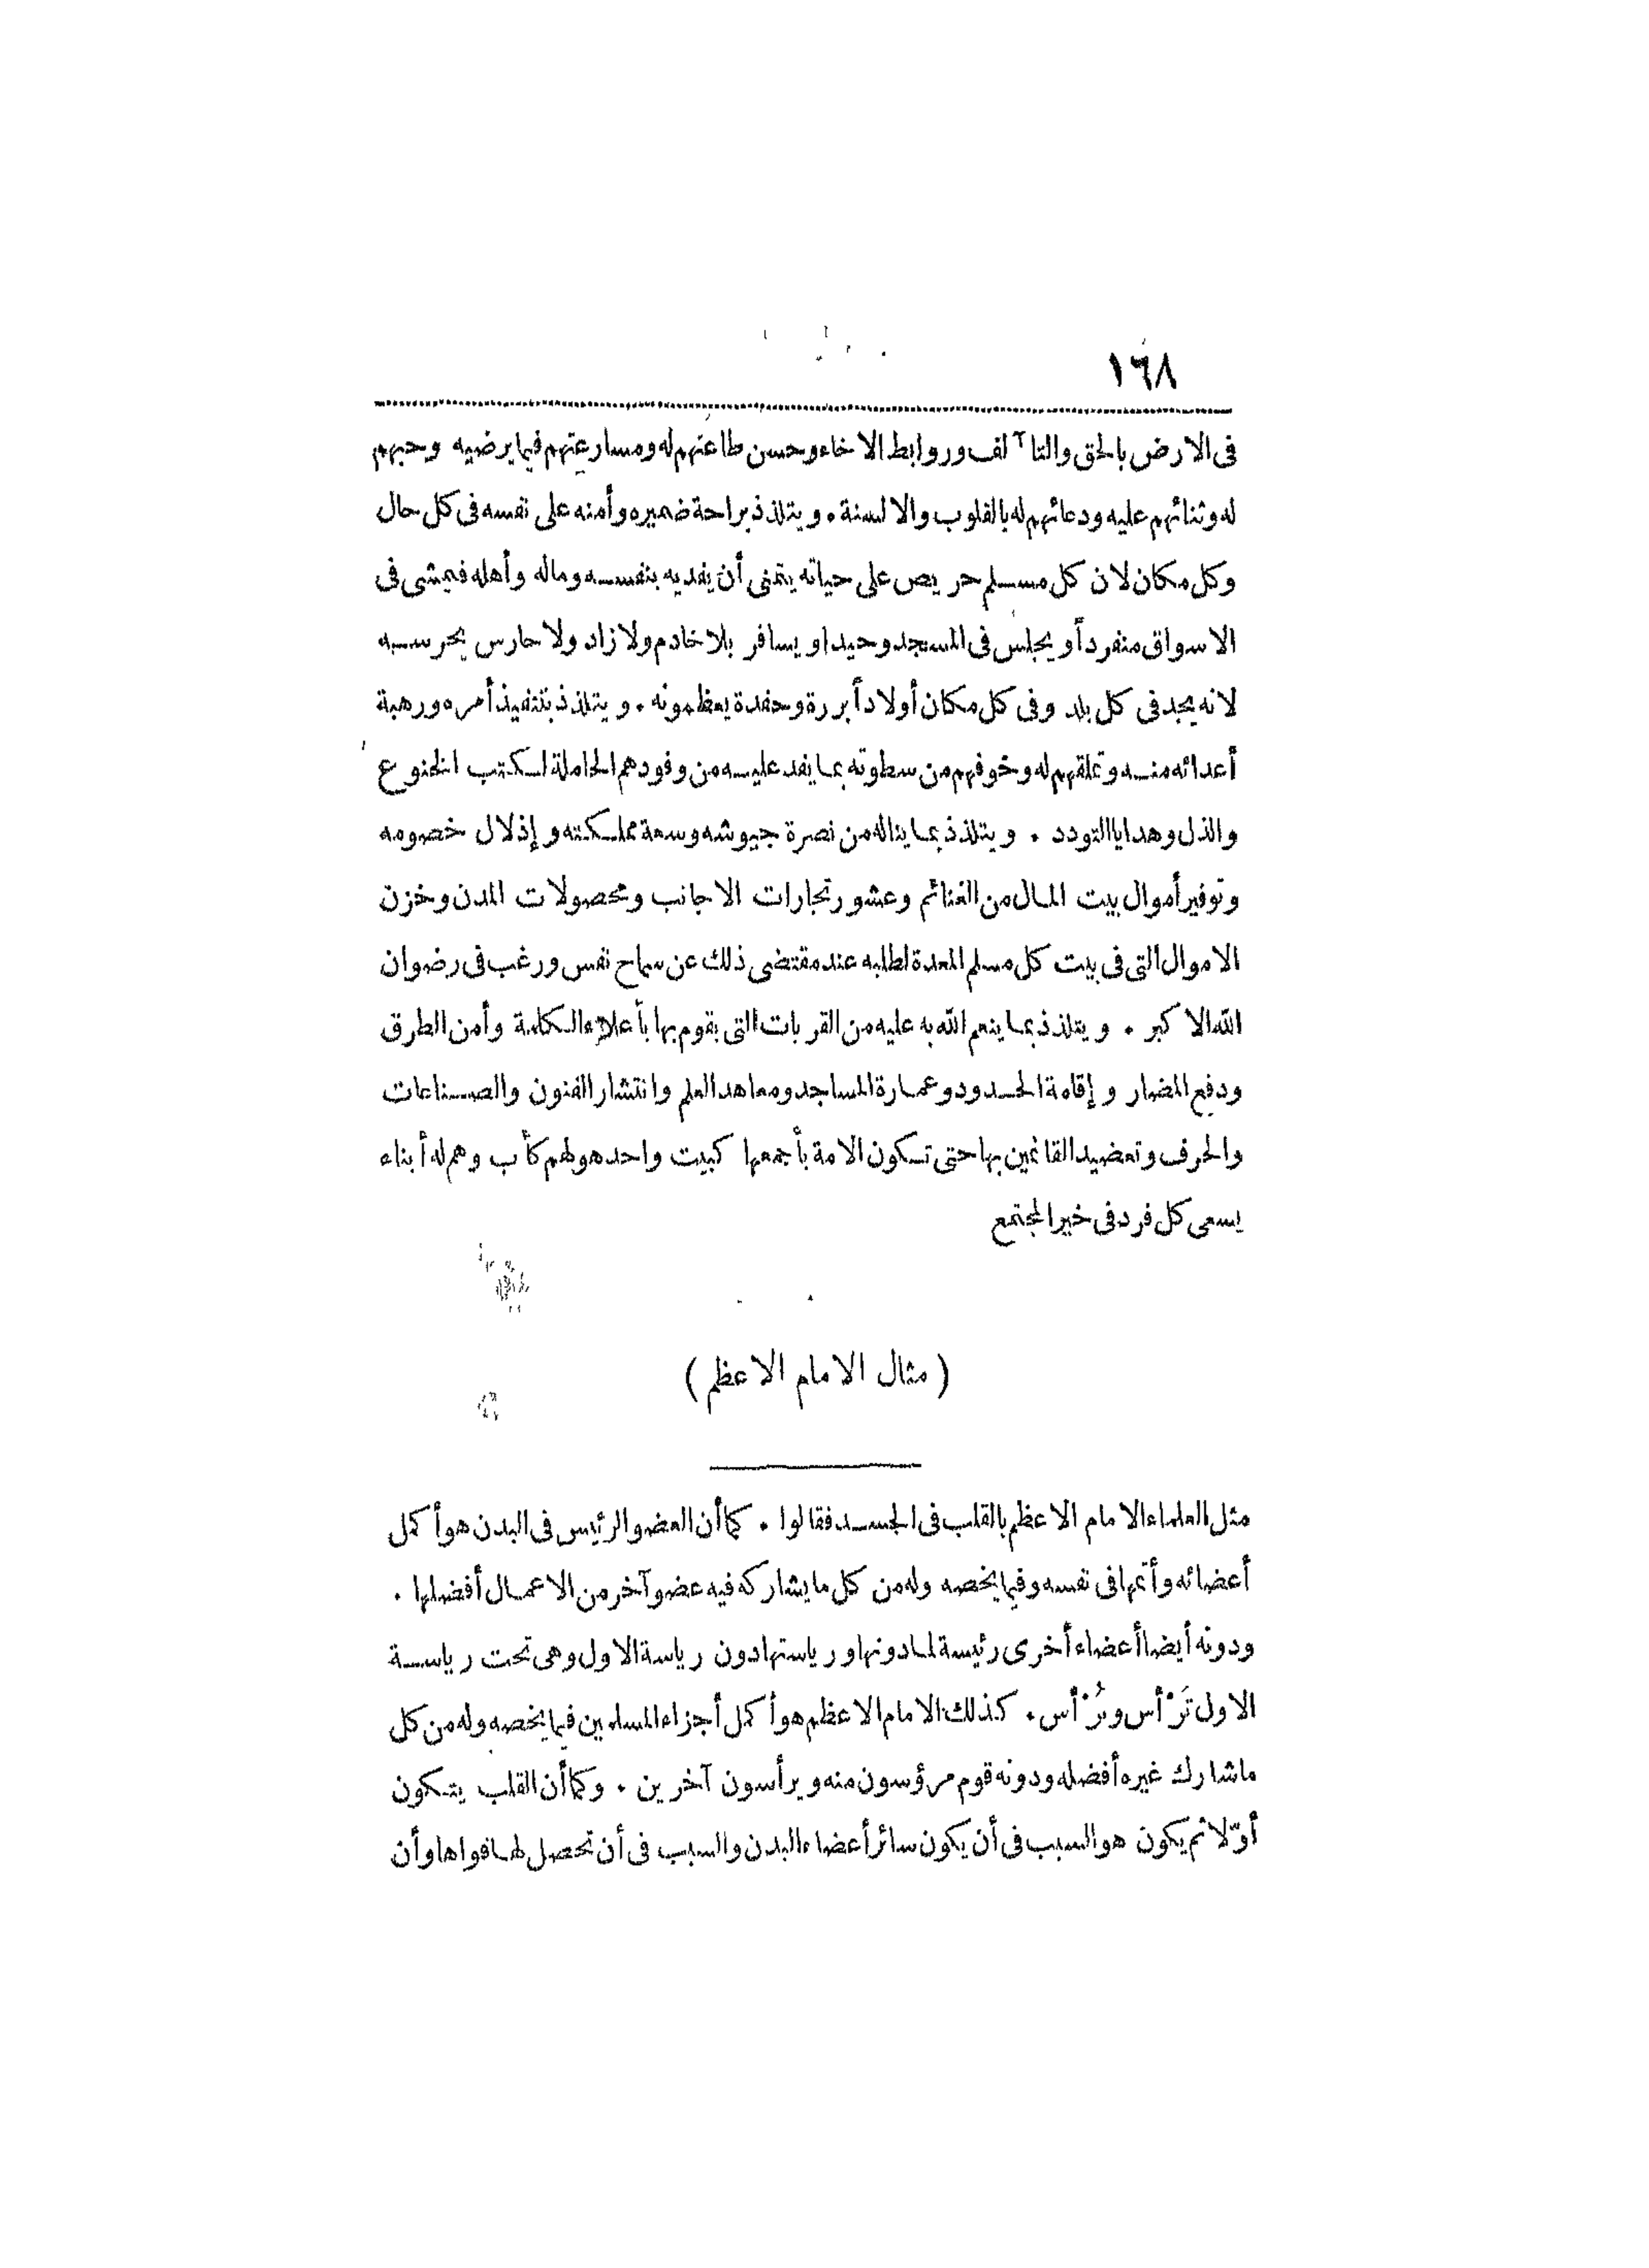 ١٦٨
فى الارض بالحق والتآلف وروابط الاخاء وحسن طاعتهم له ومسارعتهم فيما يرضيه وحبهم
له وثنائهم عليه ودعائهم له بالقلوب والالسنة . ويتلذذ براحة ضميره وأمنه على نفسه فى كل حال
وكل مكان لان كل مسلم حريص على حياته يتمنى أن يفديه بنفسه وماله وأهله فيمشى فى
الاسواق منفردا أو يجلس فى المسجد وحيدا ويسافر بلا خادم ولا زاد ولا حارس يحرسه
لانه يجد فى كل بلد وفى كل مكان أولادا بررة وحفدة يعظمونه . ويتلذذ بتنفيذ أمره ورهبة
أعدائه منه وتملقهم له وخوفهم من سطوته بما يفد عليه من وفودهم الحاملة لكتب الخنوع
والذل وهدايا التودد . ويتلذذ بما يناله من نصرة جيوشه وسعة مملكته وإذلال خصومه
وتوفير أموال بيت المال من الغنائم وعشور تجارات الاجانب ومحصولات المدن وخزن
الاموال التى فى بيت كل مسلم المعدة لطلبه عند مقتضى ذلك عن سماح نفس ورغب فى رضوان
الله الاكبر . ويتلذذ بما ينعم الله به عليه من القربات التى يقوم بها بأعلاء الكلمة وأمن الطرق
ودفع المضار وإقامة الحدود وعمارة المساجد ومعاهد العلم وانتشار الفنون والصناعات
والحرف وتعضيد القائمين بها حتى تكون الامة بأجمعها كبيت واحد هو لهم كأب وهم له أبناء
يسعى كل فرد فى خير المجتمع
( مثال الامام الاعظم )
مثل العلماء الامام الاعظم بالقلب فى الجسد فقالوا . كما أن العضو الرئيس فى البدن هو أكمل
أعضائه وأتمها فى نفسه وفيما يخصه وله من كل ما يشاركه فيه عضو آخر من الاعمال أفضلها .
ودونه أيضا أعضاء أخرى رئيسة لما دونها ورياستها دون رياسة الاول وهى تحت رياسة
الاول تَرْأس وتُرْأس . كذلك الامام الاعظم هو أكمل أجزاء المسلمين فيما يخصه وله من كل
ما شارك غيره أفضله ودونه قوم مرؤسون منه ويرأسون آخرين . وكما أن القلب يتكون
أوّلا ثم يكون هو السبب فى أن يكون سائر أعضاء البدن والسبب فى أن تحصل لها قواها وأن